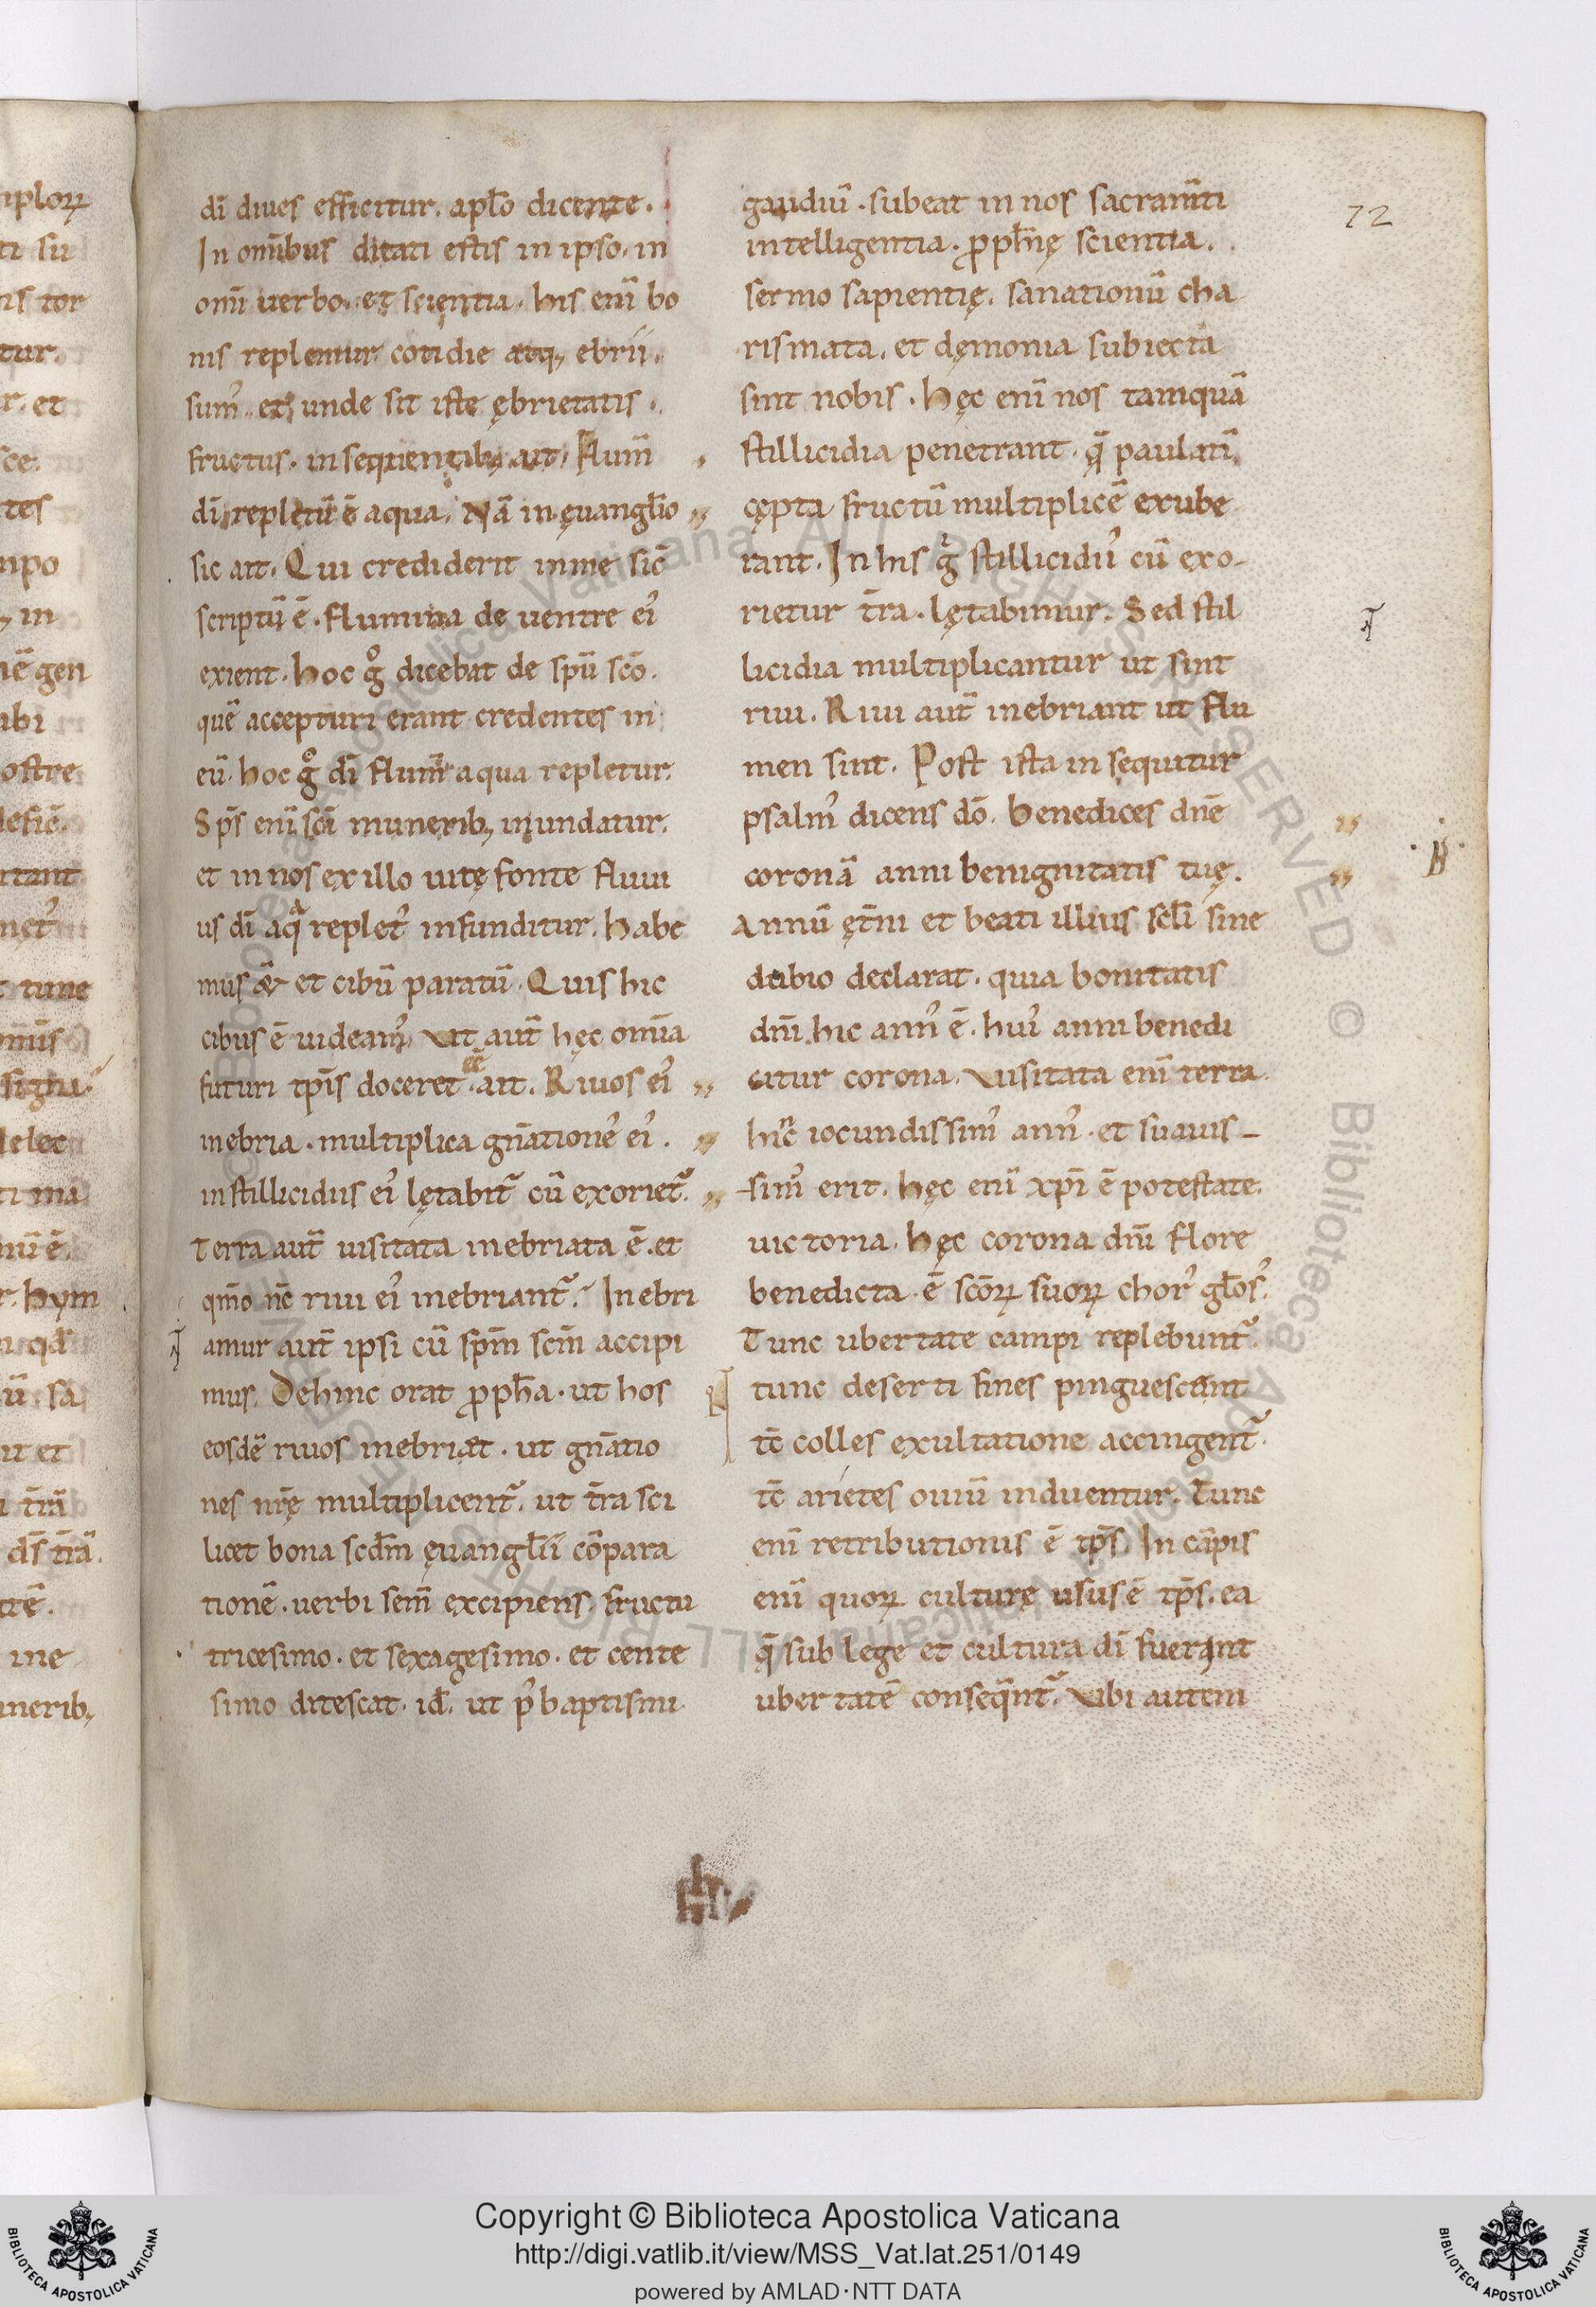 72
dī diues efficitur. apl̄o dicente.
In om̄ibus ditati estis in ipso. in
om̄i uerbo. et scientia. his eni̅ bo
nis replemur cotidie atq; ebrii.
sum᾽. et unde sit iste ębrietatis.
fructus. insequentib; ait. Flum̄
dī repletū ē aqua. Nā in ęuangl̄io
sic ait. Qui crediderit in me sic̄
scriptū ē. flumina de uentre ei᾽
exient. hoc gͦ dicebat de spū scō.
quē accepturi erant credentes in
eū. hoc gͦ dī flum̄ aqua repletur.
Sps̄ eni̅ scī munerib; inundatur.
et in nos ex illo uitę fonte fluui
us dī aqᵃ replet᾽ infunditur. habe
mus et cibū paratū. Quis hic
cibus ē uideam᾽. Vt aut̄ hęc om̄ia
futuri tp̄is doceret ait. Riuos ei᾽
inebria. multiplica gn̄atione᾽ ei᾽.
in stillicidiis ei᾽ lętabit᷑ cū exoriet᷑.
Terra aut̄ uisitata inebriata ē. et
qm̄o nc̄ riui ei᾽ inebriant᷑. Inebri
amur aut̄ ipsi cū spm̄ scm̄ accipi
mus. Dehinc orat ꝓph̄a. ut hos
eosdē riuos inebriet. ut gn̄atio
nes nr̄ę multiplicent᷑. ut t̄ra sci
licet bona scd̄m ęuangl̄ii cōpara
tionē. uerbi sem̄ excipiens. fructu
tricesimo. et sexagesimo. et cente
simo ditescat. id̄. ut p᾽ baptismi
gaudiū. subeat in nos sacram̄ti
intelligentia. ꝓph̄ię scientia.
sermo sapientię. sanationū cha
rismata. et dęmonia subiecta
sint nobis. Hęc eni̅ nos tamquā
stillicidia penetrant. q̄ paulatī
cępta fructū multiplicē exube
rant. In his g᾽ stillicidi᾽ cū exo-
rietur t̄ra. lętabimur. Sed stil
licidia multiplicantur ut sint
riui. Riui aut̄ inebriant ut flu
men sint. Post ista insequitur
psalm᾽ dicens dō. Benedices dn̄e
coronā anni benignitatis tuę.
Annū ęt̄ni et beati illius scl̄i sine
dubio declarat. quia bonitatis
dn̄i hic ann᾽ ē. hui᾽ anni benedi
citur corona. Visitata eni̅ terra
hic iocundissim᾽ ann᾽. et suauis-
sim᾽ erit. hęc eni̅ xp̄i ē potestate.
uictoria. hęc corona dn̄i flore
benedicta. ē scōꝝ suoꝝ chor᾽ gl̄os᾽.
Tunc ubertate campi replebunt᷑.
tunc deserti fines pinguescunt
tc̄ colles exultatione accingent᷑.
tc̄ arietes ouiū induentur. Tunc
eni̅ retributionis ē tp̄s. In cāpis
eni̅ quoꝝ culturę usus ē tp̄s. ea
q̄ sub lege et cultura dī fuerint
ubertatē conseq̄nt᷑. Vbi autem
Copyright © Biblioteca Apostolica Vaticana
http://digi.vatlib.it/view/MSS_Vat.lat.251/0149
powered by AMLAD·NTT DATA
BIBLIOTECA APOSTOLICA VATICANA
BIBLIOTECA APOSTOLICA VATICANA